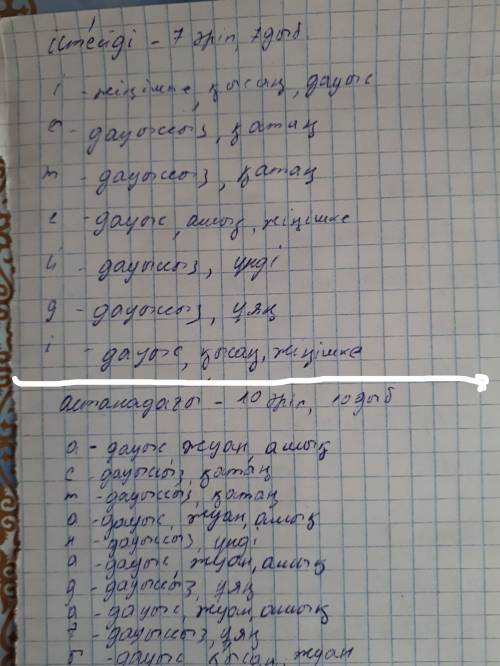 істейді - 7 әріп, 7дыб
і - жіңішке, қысаң, дауыс
с - дауыссыз, қатаң
т - дауыссыз, қатаң
е - дауыс, ашық, жіңішке
й - дауыссыз, үнді
д - дауыссыз, ұяң
і - дауыс, қысаң, жіңішке
астанадағы - 10 әріп, 10 дыб
а - дауыс, жуан, ашық
с - дауыссыз, қатаң
т - дауыссыз, қатаң
а - дауыс, жуан, ашық
н - дауыссыз, үнді
а - дауыс, жуан, ашық
д - дауыссыз, ұяң
а - дауыс, жуан, ашық
ғ - дауыссыз, ұяң
дауыс қысаң, жуан